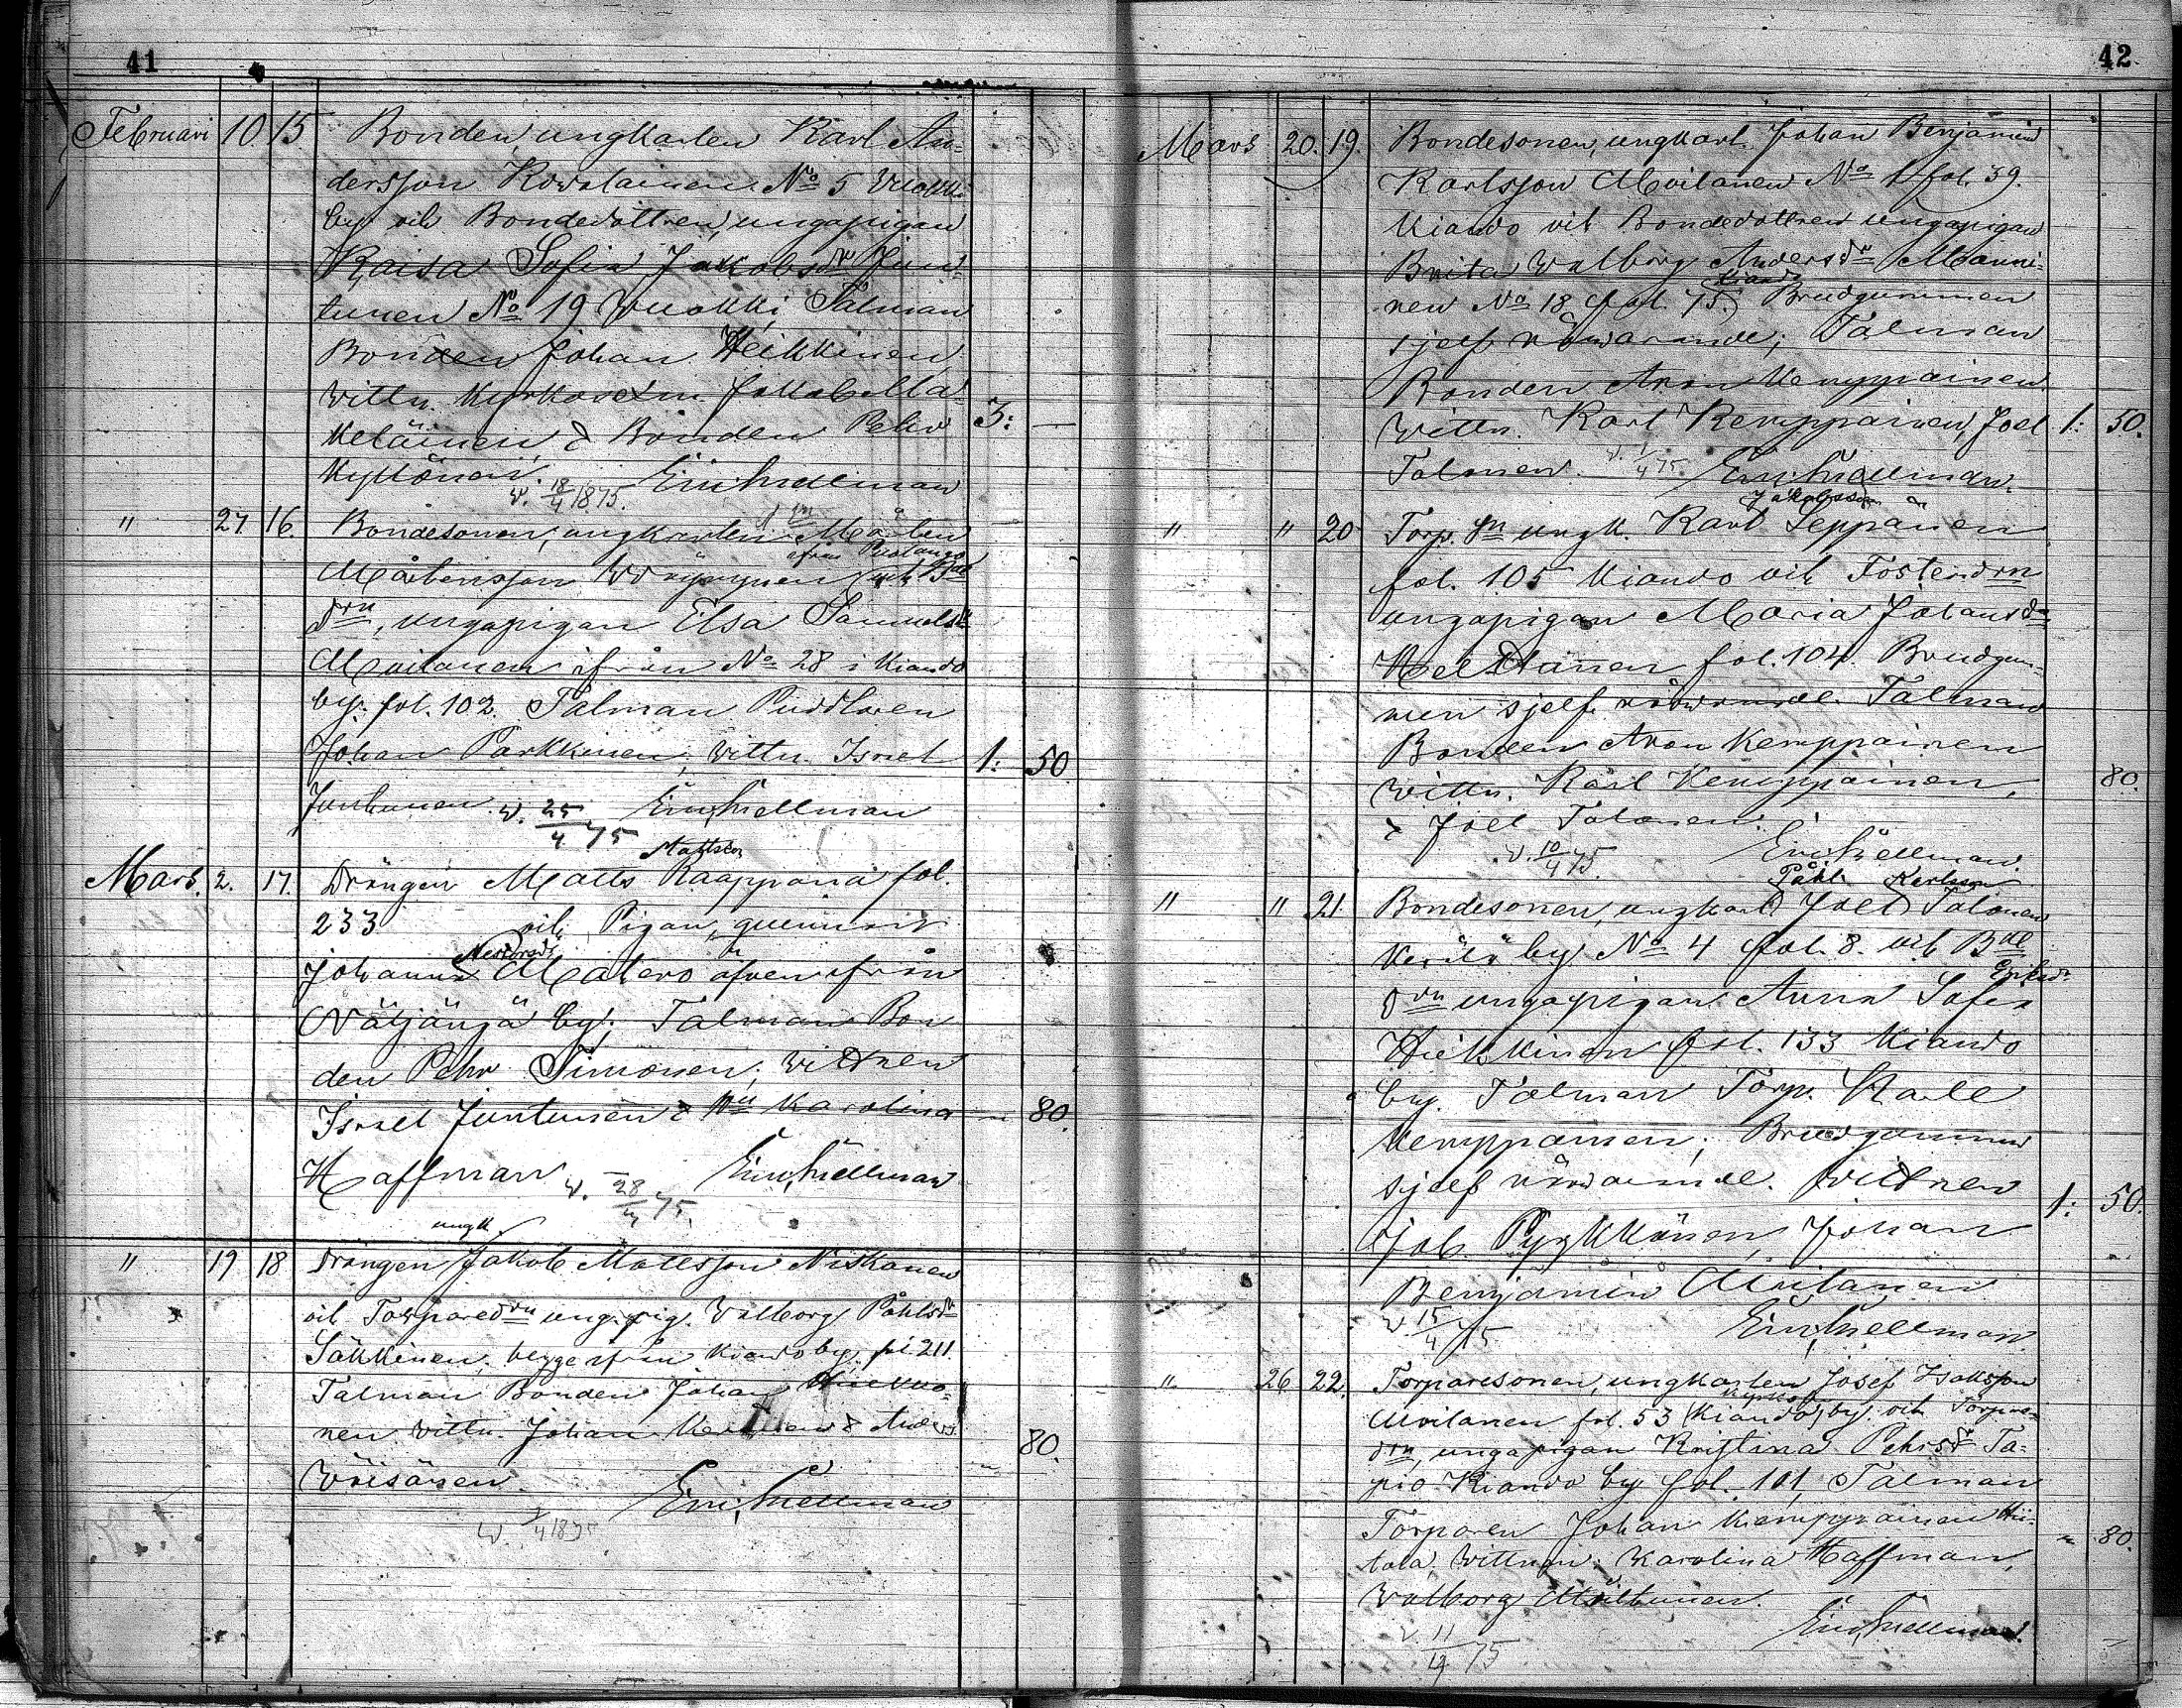 41
Februari 10. 15. Bonden, ungkarlen Karl An-
dersson Kowalainen No 5 Vuokki
by och Bondedottren, ungapigan
Kaisa Sofia Jakobsdr Jun-
tunen No 19 Vuokki, Talman
Bonden Johan Heikkinen
Wittn. Kyrkovektn. Jakob Ma-
keläinen & Bonden Pehr 3: —
Kyllönen.
v. 18/4 1875. Eric Snellman
" 27. 16. Bondesonen, ungkarlen Mårten
ifrån Puolango
Mårtensson Wäyrynen och Bde
drn, ungapigan Elsa Samuelsdr
Moilanen ifrån No 28 i Kiando
by. fol. 102. Talman Puddaren
Johan Parkkinen, Wittn. Israel 1: 50
Juntunen. v. 25/4 75 Eric Snellman
Mattsson
Mars. 2. 17. Drängen Matts Raappana fol.
233 och Pigan, quinnan
Johanna Matero äfven ifrån
Näljängä by; Talman Bon
den Pehr Timonen; Wittnen
Israel Juntunen & Karolina — 80.
Haffman v. 28/4 75. Eric Snellman
ungk.
" 19 18 Drängen Jakob Mattsson Niskanen
och Torparedrn ung. pig. Walborg Påhlsdr
Säkkinen, begge ifrån Kiando by. fol. 211.
Talman Bonden Johan
nen Wittn. Johan & Anders 80.
Wäisänen.
Eric Snellman
v. /4 1875
42
Mars 20. 19. Bondesonen, ungkarl. Johan Benjamin
Karlsson Moilanen No 1 fol. 39.
Kiando och Bondedottren ungapigan
Brita Walborg Andersdr Manni-
Kiando
nen No 18 fol. 75. Brudgummen
sjelf närvarande; Talman
Bonden Aron Kemppainen
Wittn. Karl Kemppainen, Joel 1: 50.
Talonen. v. 1/4 75. Eric Snellman.
Jakobsson
" " 20 Torp. sn ungk. Karl Seppänen
fol. 105 Kiando och Fosterdrn
ungapigan Maria Johansdr
fol. 104. Brudgum-
men sjelf närvarande. Talman
Bonden Aron Kemppainen
Wittn. Karl Kemppainen, 80.
& Joel Talonen.
v. 10/4 75. Eric Snellman
Påhl Karlsson
" " 21. Bondesonen, ungkarl Joel Talonen
Kerälä by No 4 fol. 8. och Bde
Eriksdr
drn ungapigan Anna Sofia
Heikkinen fol. 133 Kiando
by. Talman Torp. Kalle
Kemppainen; Brudgummen
sjelf närvarande. Wittnen 1: 50.
Job Pyykkönen, Johan
Benjamin Moilanen
v. 15/4 75 Eric Snellman
" 26 22. Torparesonen, ungkarlen Josef Isaksson
Moilanen fol. 53 Kiando by. och Torpare-
drn, ungapigan Kristina Pehrsdr Ta-
pio Kiando by fol. 101, Talman
Torparen Johan Kemppainen Kii-
tola, Wittnen: Karolina Haffman, " 80.
Walborg
Eric Snellman.
v. 11/4 75